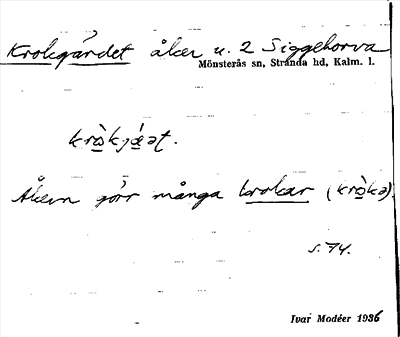 Krokgärdet åker u. 2 Siggehorva
Mönsterås sn, Stranda hd, Kalm. l.
krò̱kjǽ̱ət.
Åkern görr många krokar (krò̱kə).
s. 74.
Ivar Modéer 1936